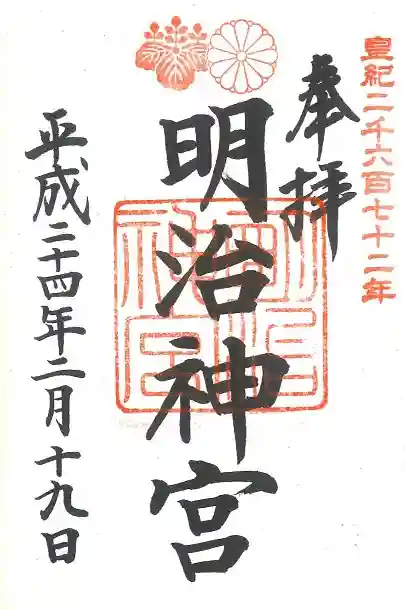 皇紀二千六百七十二年
奉拝
明治神宮
明治神宮
平成二十四年二月十九日